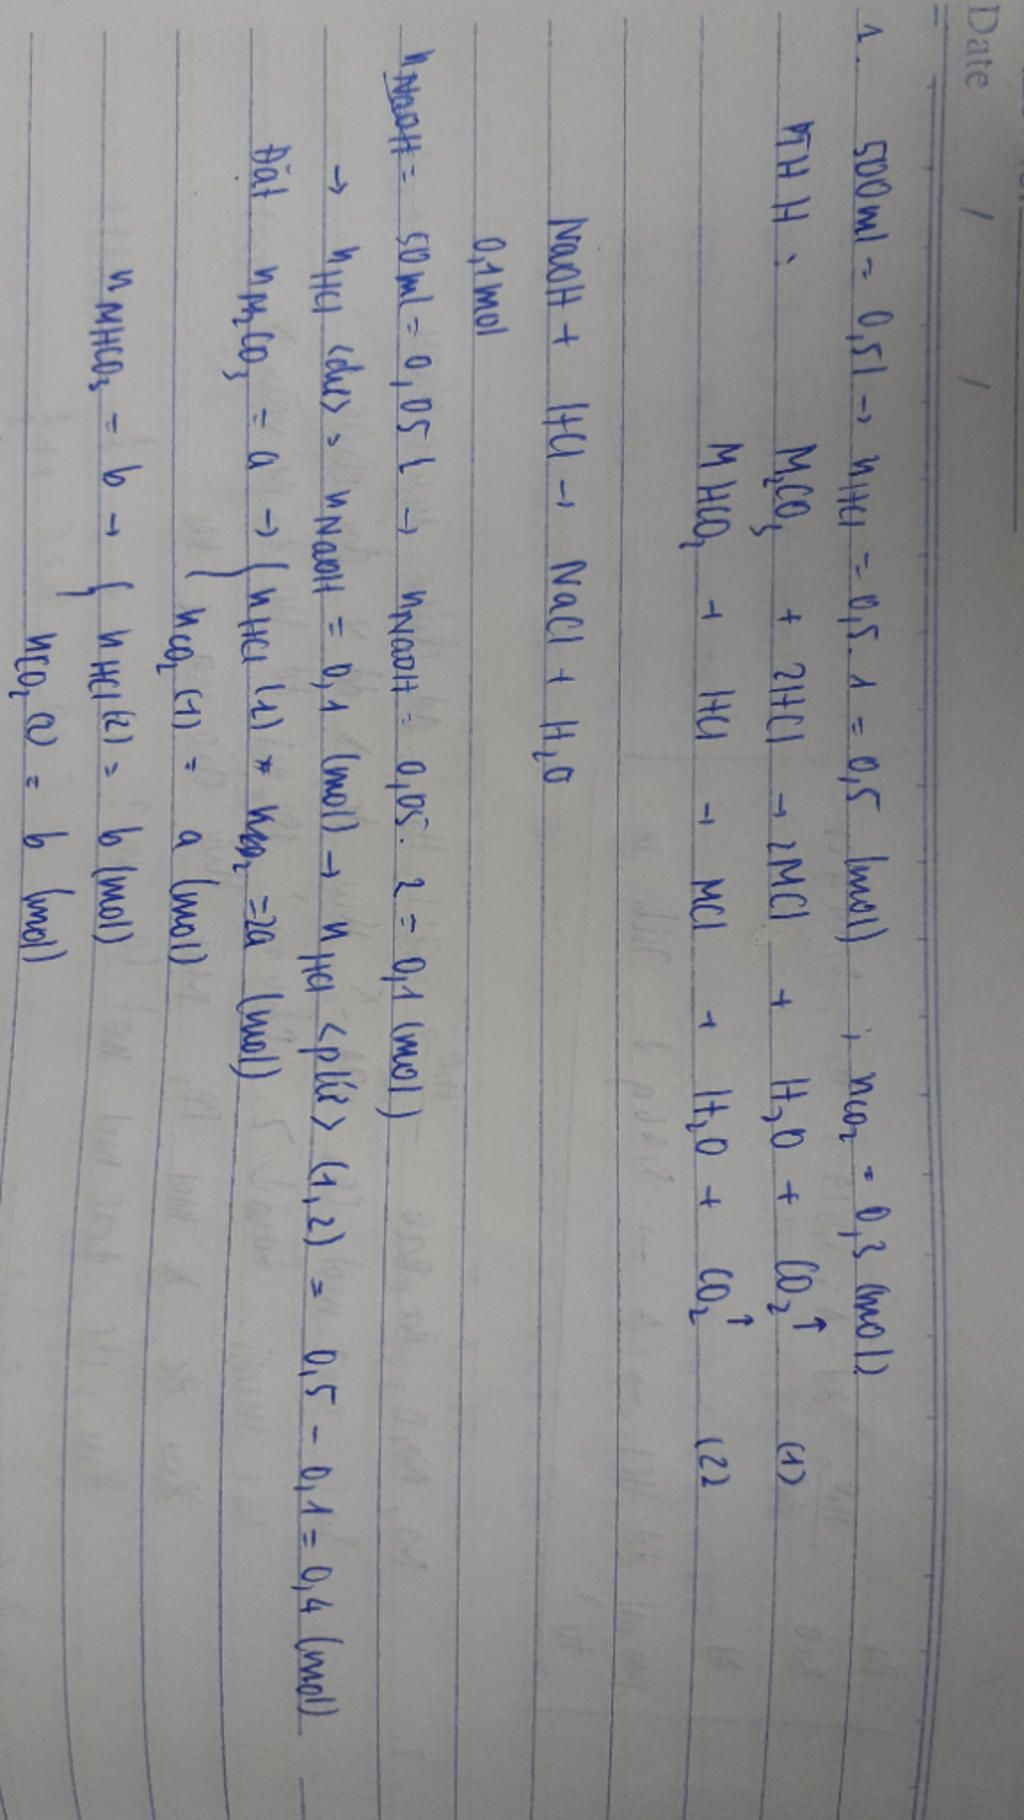 Date / /
1. 500ml = 0,5l → nHCl = 0,5. 1 = 0,5 (mol) ; nCO₂ = 0,3 (mol)
PTHH : M₂CO₃ + 2HCl → 2MCl + H₂O + CO₂↑ (1)
MHCO₃ + HCl → MCl + H₂O + CO₂↑ (2)
NaOH + HCl → NaCl + H₂O
0,1mol
nNaOH = 50ml = 0,05 l → nNaOH = 0,05. 2 = 0,1 (mol)
→ nHCl <dư> = nNaOH = 0,1 (mol) → nHCl <pứ> (1,2) = 0,5 - 0,1 = 0,4 (mol)
Đặt nM₂CO₃ = a → { nHCl (1) = 2a (mol)
nCO₂ (1) = a (mol)
nMHCO₃ = b → { nHCl (2) = b (mol)
nCO₂ (2) = b (mol)